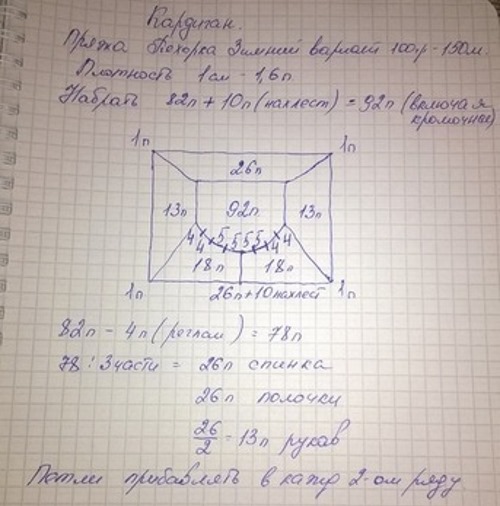 Кардиган.
Пряжа Пехорка Зимний вариант 100гр - 150м.
Плотность 1см - 1,6п.
Набрать 82п + 10п (нахлест) = 92п (включая
кромочные)
1п 1п
26п
13п 92п 13п
4 4 5 5 5 5 4 4
18п 18п
1п 26п+10нахлест 1п
82п - 4п (реглан) = 78п
78 : 3части = 26п спинка
26п полочки
26/2 = 13п рукав
Петли прибавлять в кажд 2-ом ряду